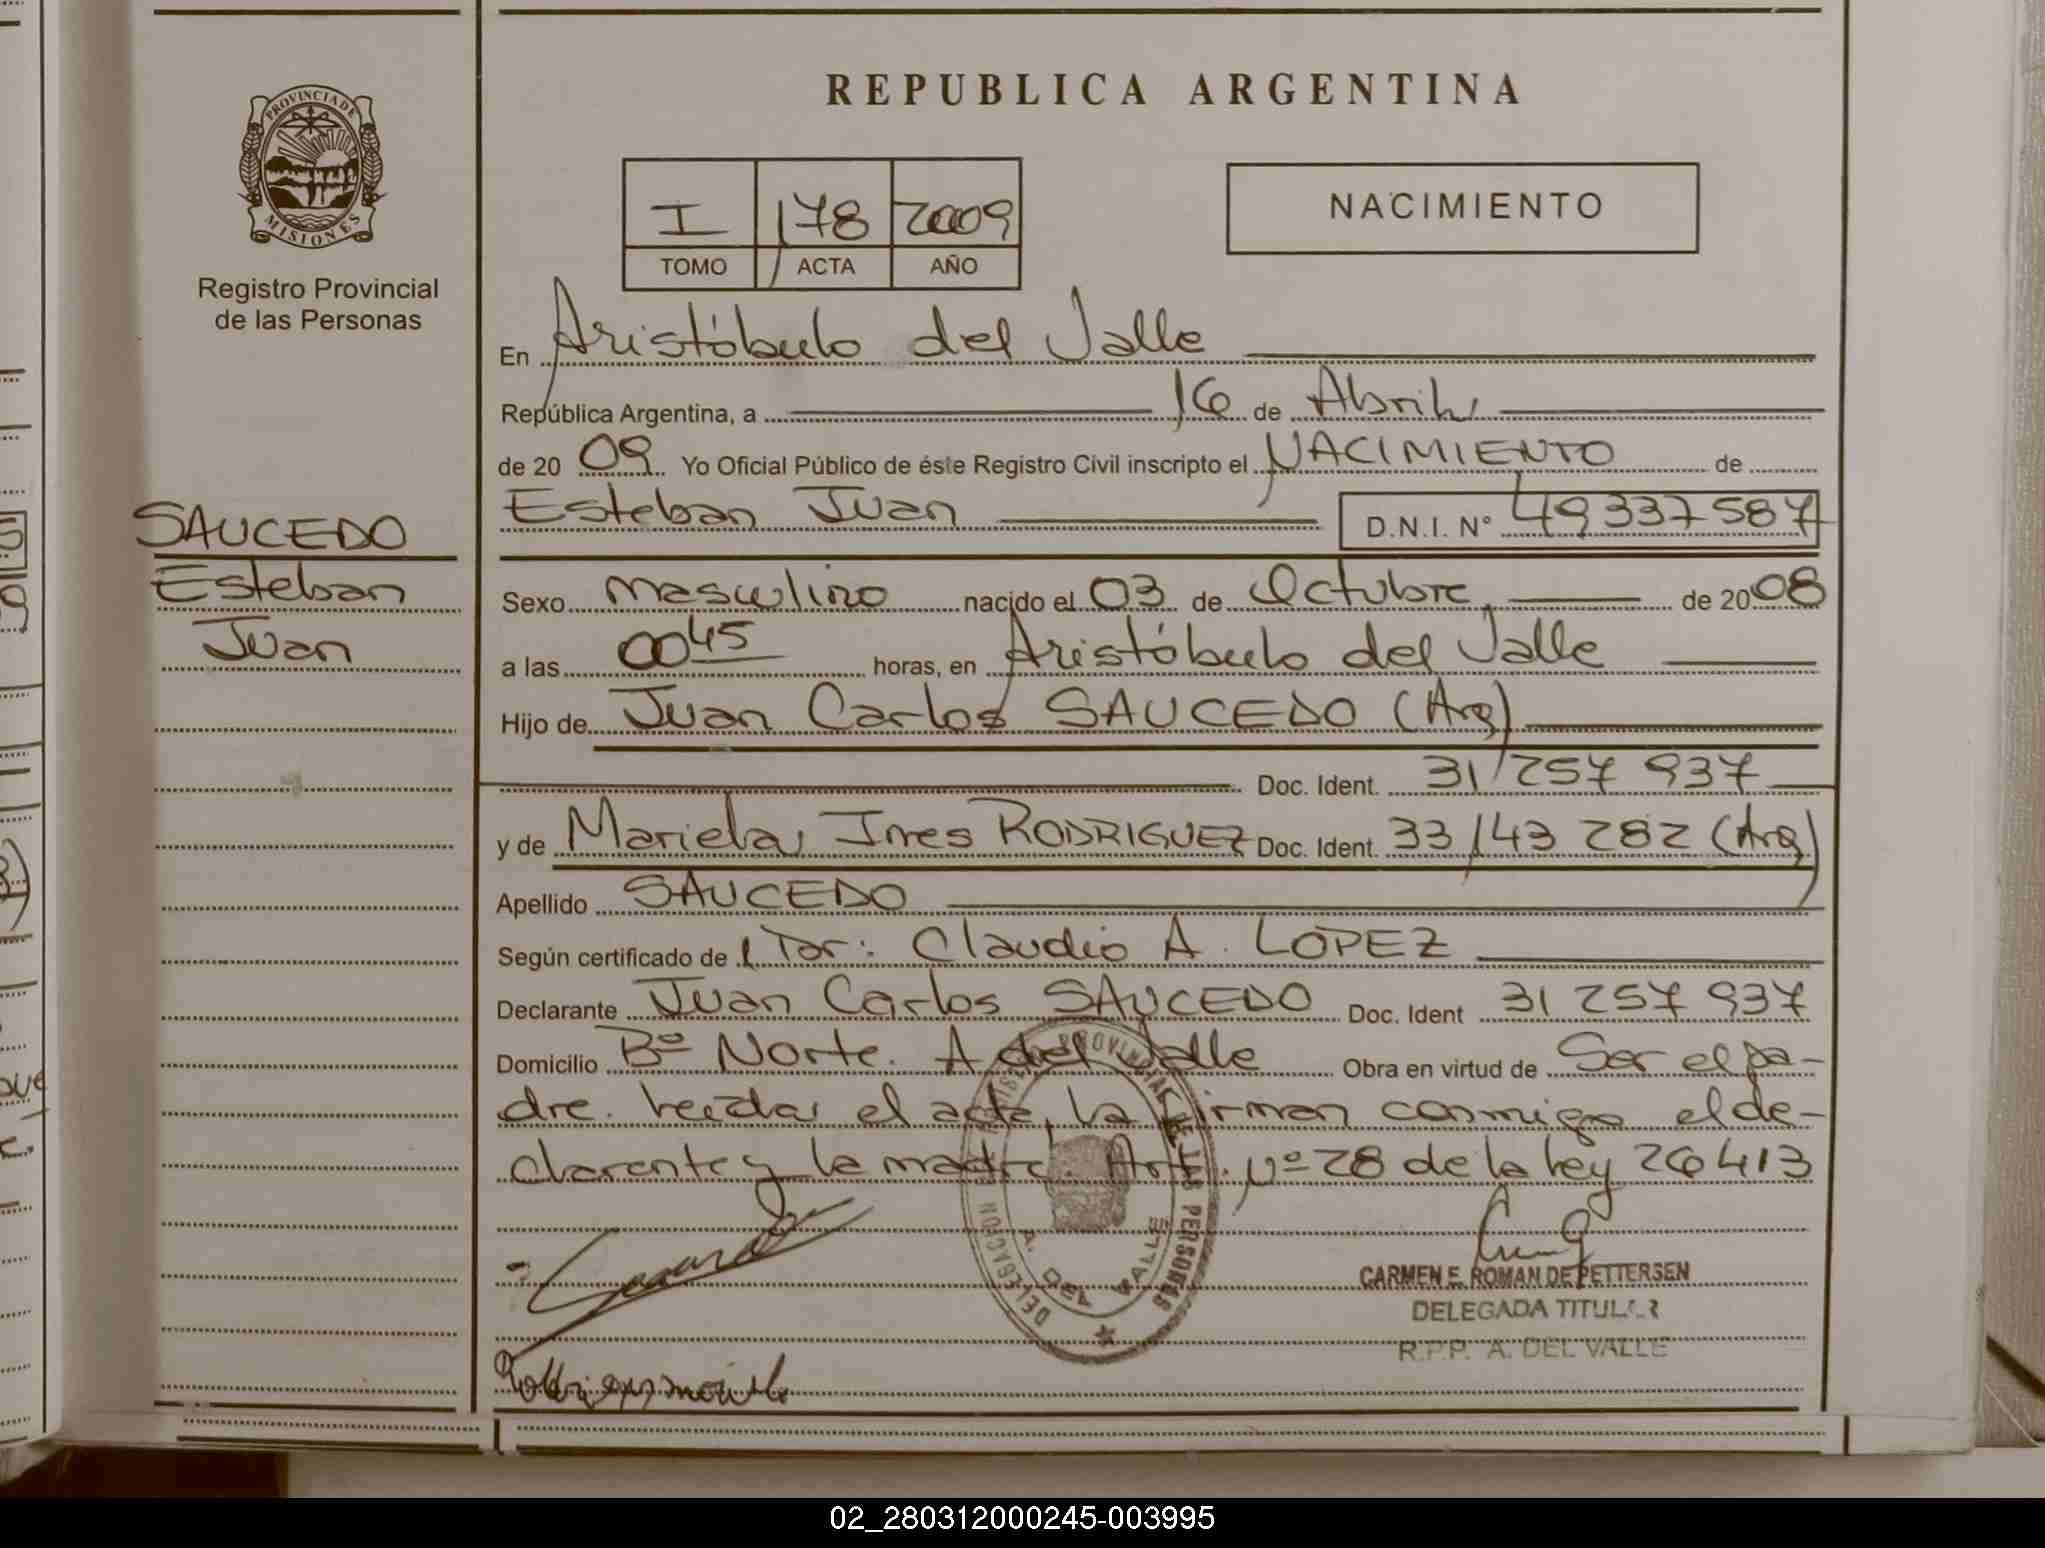 REPUBLICA ARGENTINA
PROVINCIA DE
MISIONES
Registro Provincial
de las Personas
I 178 2009
TOMO ACTA AÑO
NACIMIENTO
En Aristóbulo del Valle
República Argentina, a 16 de Abril
de 2009 Yo Oficial Público de éste Registro Civil inscripto el NACIMIENTO de
Esteban Juan D.N.I. N° 49 337 587
SAUCEDO
Esteban
Juan
Sexo masculino nacido el 03 de Octubre de 2008
a las 0045 horas, en Aristóbulo del Valle
Hijo de Juan Carlos SAUCEDO (Arg)
Doc. Ident. 31 257 937
y de Mariela Ines RODRIGUEZ Doc. Ident. 33 143 282 (Arg)
Apellido SAUCEDO
Según certificado de Claudio A. LOPEZ
Declarante Juan Carlos SAUCEDO Doc. Ident 31 257 937
Domicilio Bº Norte. A del Valle Obra en virtud de Ser el pa-
dre. Leida el acta, la firman conmigo el de-
clarante y la madre. Art. Nº 28 de la Ley 26413
DELEGACION REGISTRO PROVINCIAL DE LAS PERSONAS
A. DEL VALLE
CARMEN E. ROMAN DE PETTERSEN
DELEGADA TITULAR
R.P.P. A. DEL VALLE
02_280312000245-003995